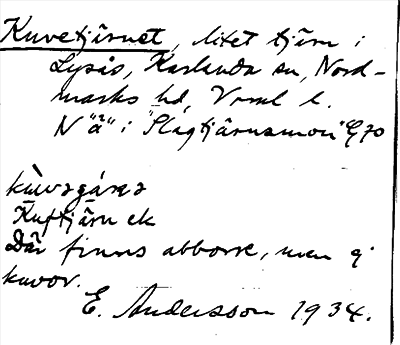 Kuvetjärnet, litet tjärn i
Lysås, Karlanda sn, Nord-
marks hd, Vrml l.
N "ä" i "Slagtjärnsmon" G70
Kuftjärn ek
Där finns abborre, men ej
kuvor.
E. Andersson 1934.